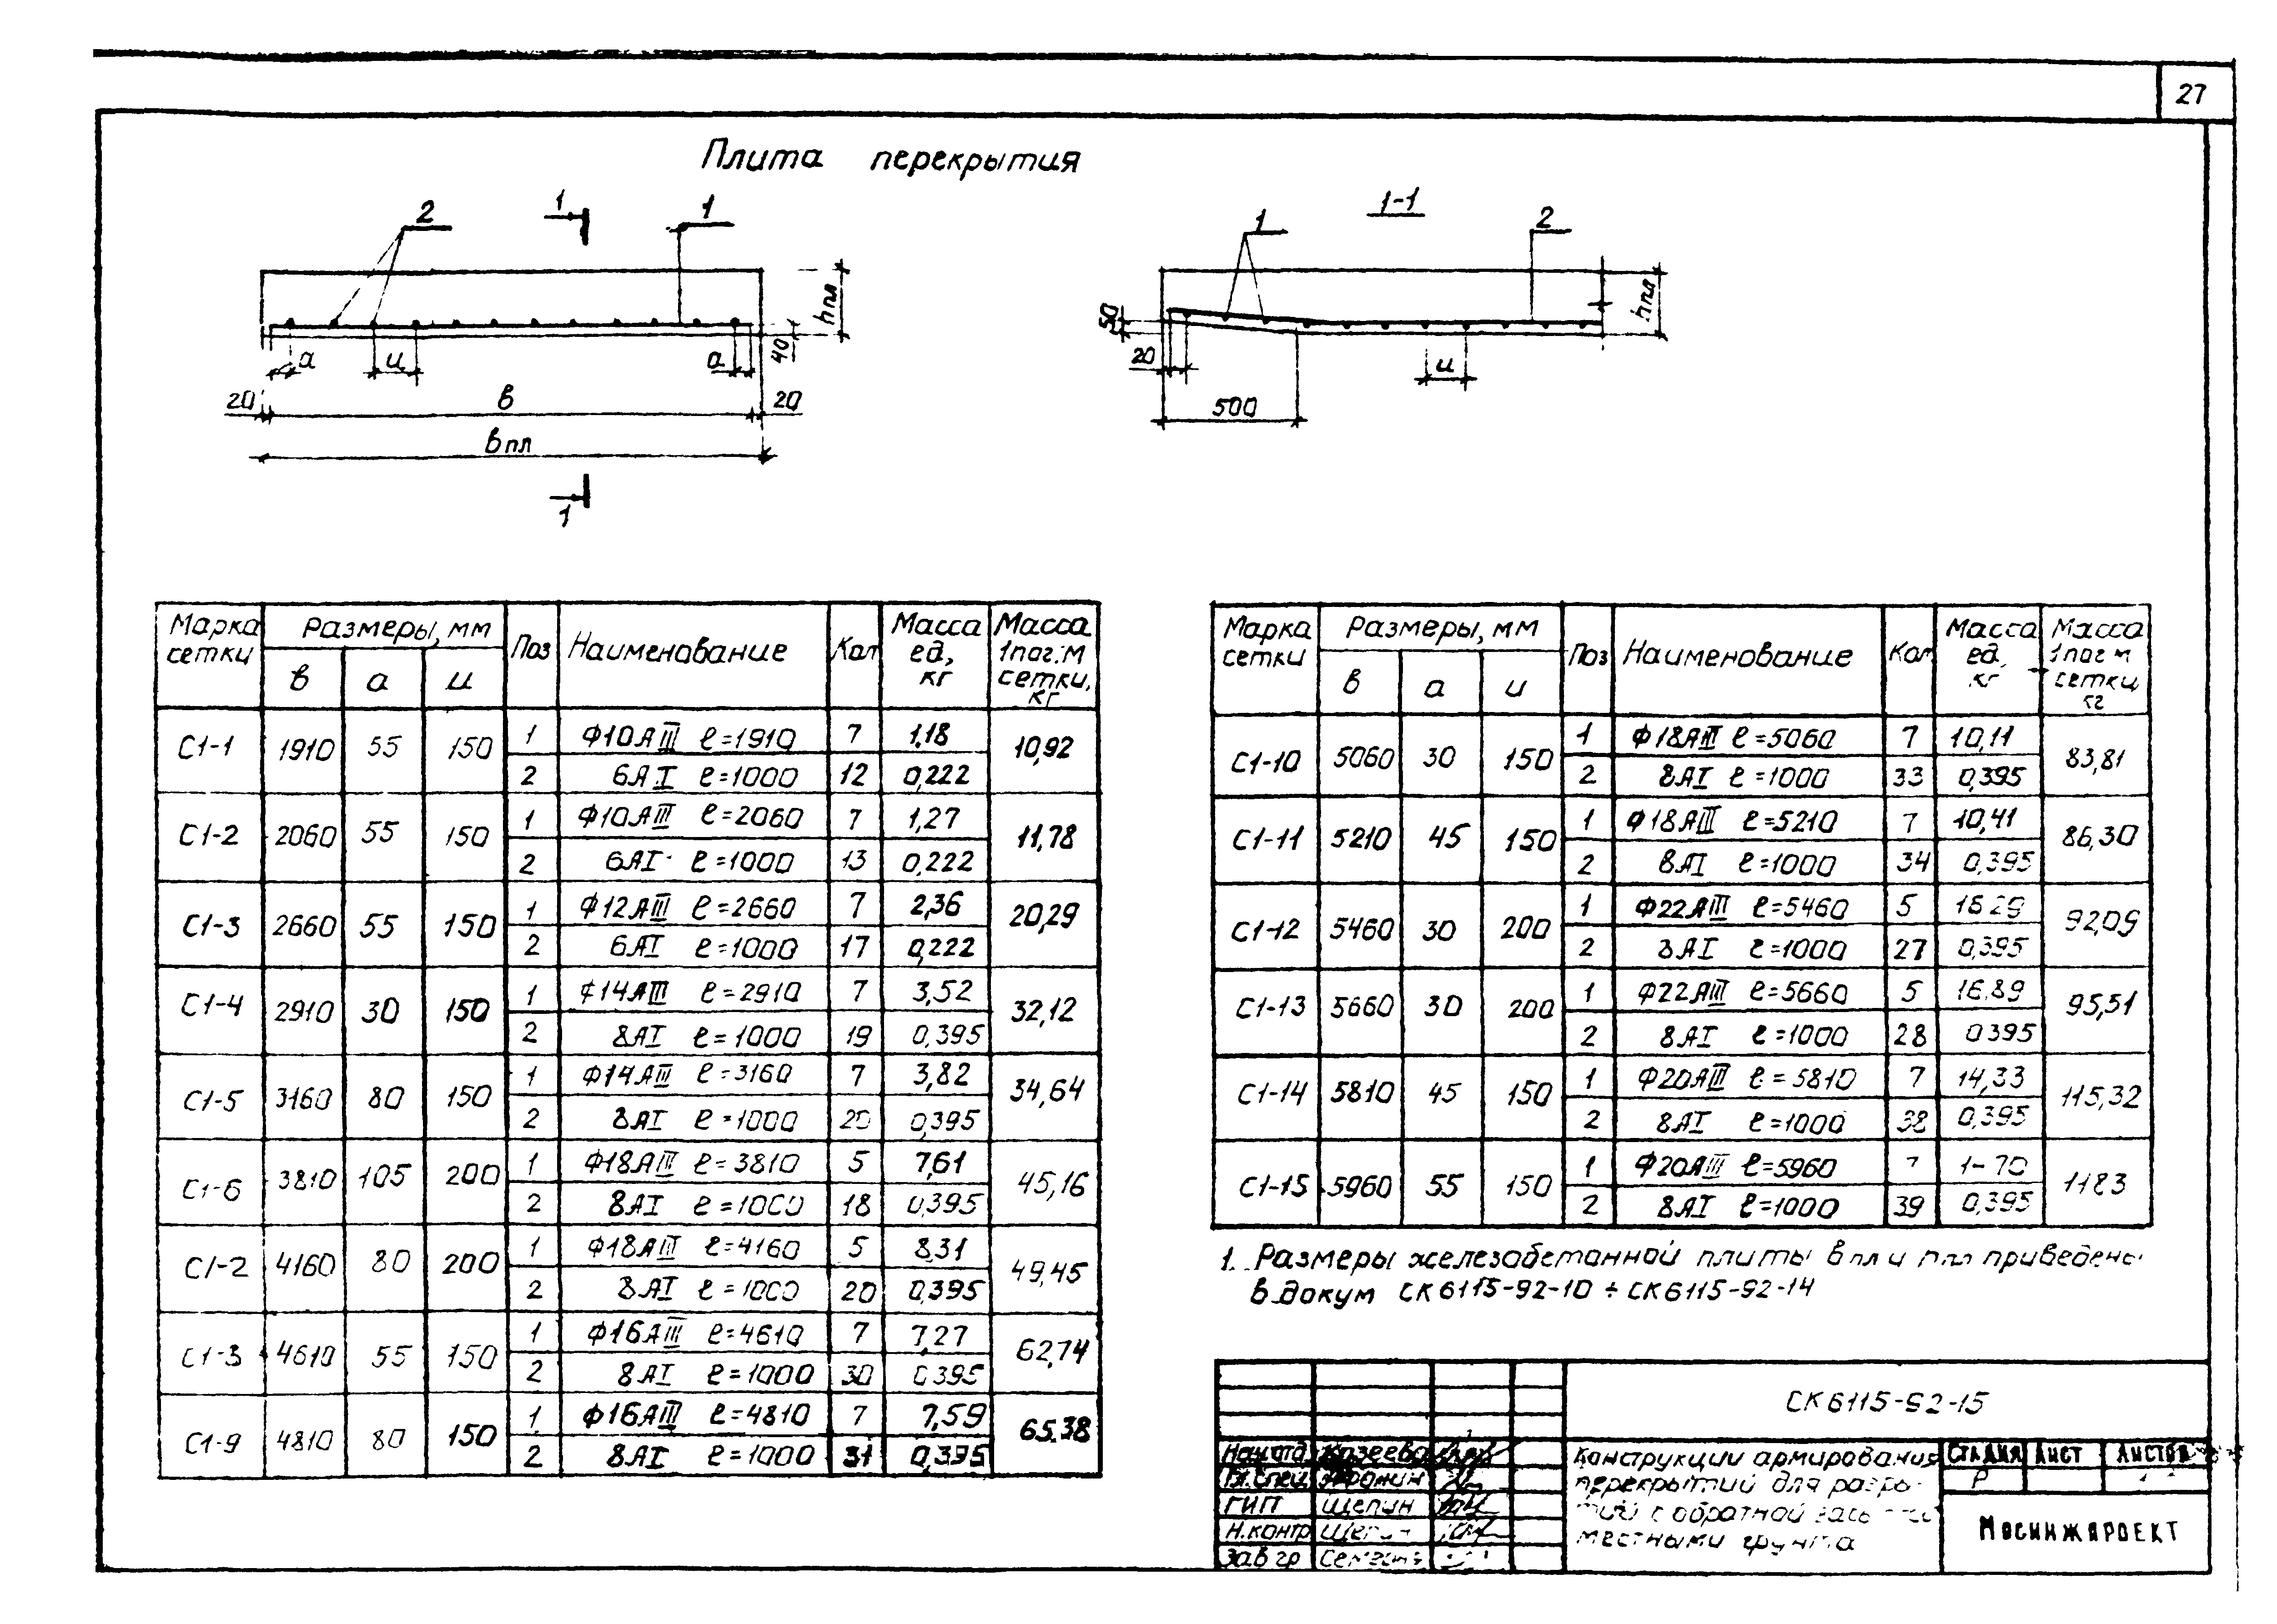 27
Плита перекрытия
2 1 1
hпл
40
а и а
20 в 20
в пл
1
1-1
1 2
hпл
50
20 и
500
Марка сетки Размеры, мм Поз Наименование Кол Масса ед, кг Масса 1пог.м сетки, кг
в а и
С1-1 1910 55 150 1 Ф10АIII ℓ=1910 7 1,18 10,92
2 6АI ℓ=1000 12 0,222
С1-2 2060 55 150 1 Ф10АIII ℓ=2060 7 1,27 11,78
2 6АI ℓ=1000 13 0,222
С1-3 2660 55 150 1 Ф12АIII ℓ=2660 7 2,36 20,29
2 6АI ℓ=1000 17 0,222
С1-4 2910 30 150 1 Ф14АIII ℓ=2910 7 3,52 32,12
2 8АI ℓ=1000 19 0,395
С1-5 3160 80 150 1 Ф14АIII ℓ=3160 7 3,82 34,64
2 8АI ℓ=1000 20 0,395
С1-6 3810 105 200 1 Ф18АIII ℓ=3810 5 7,61 45,16
2 8АI ℓ=1000 18 0,395
С1-2 4160 80 200 1 Ф18АIII ℓ=4160 5 8,31 49,45
2 8АI ℓ=1000 20 0,395
С1-3 4610 55 150 1 Ф16АIII ℓ=4610 7 7,27 62,74
2 8АI ℓ=1000 30 0,395
С1-9 4810 80 150 1 Ф16АIII ℓ=4810 7 7,59 65,38
2 8АI ℓ=1000 31 0,395
Марка сетки Размеры, мм Поз Наименование Кол Масса ед, кг Масса 1пог м сетки кг
в а и
С1-10 5060 30 150 1 Ф18АIII ℓ=5060 7 10,11 83,81
2 8АI ℓ=1000 33 0,395
С1-11 5210 45 150 1 Ф18АIII ℓ=5210 7 10,41 86,30
2 8АI ℓ=1000 34 0,395
С1-12 5460 30 200 1 Ф22АIII ℓ=5460 5 16 29 92,09
2 8АI ℓ=1000 27 0,395
С1-13 5660 30 200 1 Ф22АIII ℓ=5660 5 16.89 95,51
2 8АI ℓ=1000 28 0 395
С1-14 5810 45 150 1 Ф20АIII ℓ=5810 7 14,33 115,32
2 8АI ℓ=1000 38 0,395
С1-15 5960 55 150 1 Ф20АIII ℓ=5960 7 118 3
2 8АI ℓ=1000 39 0,395
1. Размеры железобетонной плиты впл и приведены
в докум СК6115-92-10 ÷ СК6115-92-14
СК6115-92-15
Нач.отд. Казеева
Гл.спец.
ГИП Щепин
Н.контр Щепин
Зав гр
Конструкции армирования
перекрытий для
с обратной
местными грунта
Стадия Лист Листов
Р
Мосинжпроект